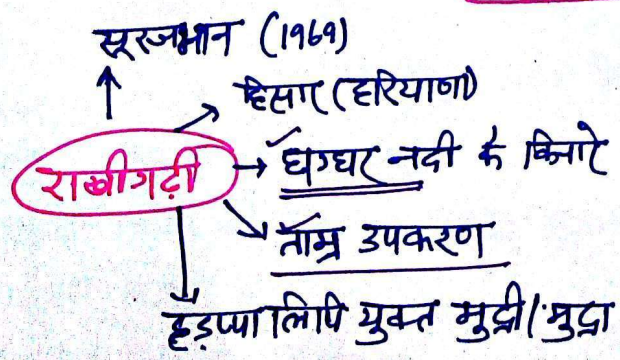 सूरजभान (1969)
हिसार (हरियाणा)
राखीगढ़ी
घग्घर नदी के किनारे
ताम्र उपकरण
हड़प्पा लिपि युक्त मुद्री / मुद्रा